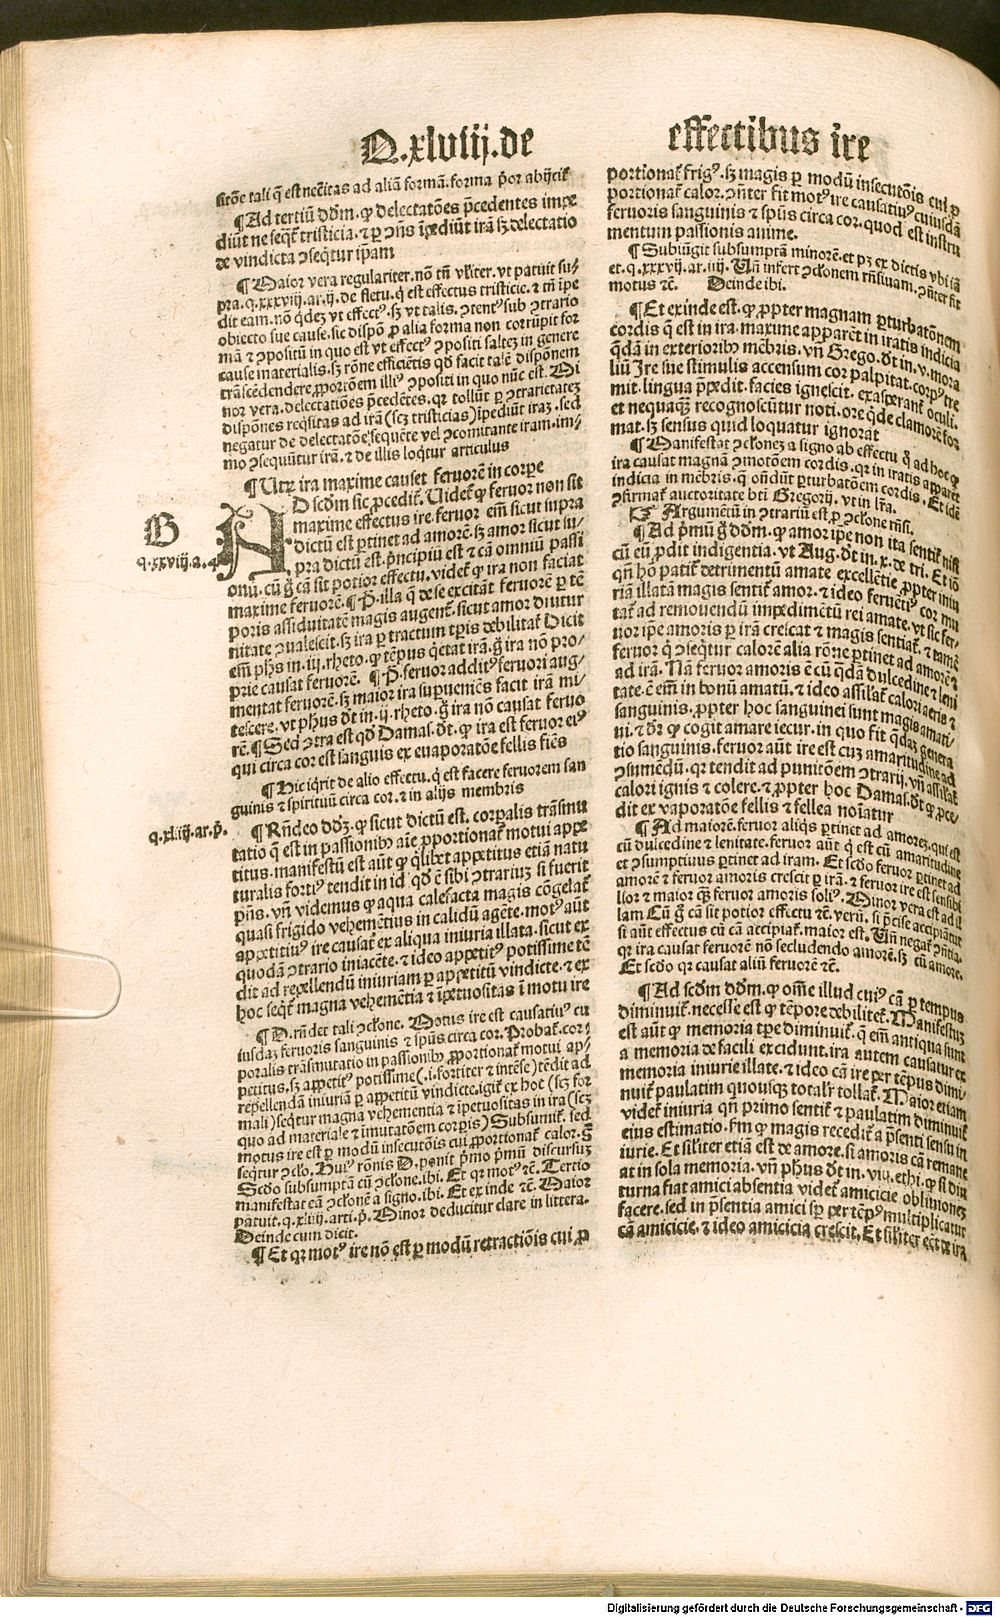 Q.xlviij.de effectibus ire
sitōe tali q̄ est necītas ad aliā formā. forma p̄or abijcit᷑
¶ Ad tertiū ddm̄. ꝙ delectatōes p̄cedentes impe
diūt ne seqt᷑ tristicia. ⁊ ꝑ ꝯn̄s īpediūt irā sꝫ delectatio
de vindicta ꝯseqt᷑ ip̄am
¶ Maior vera regulariter. nō tn̄ vl̄iter. vt patuit su⸗
pra. q. xxxviij. ar. ij. de fletu. q̇ est effectus tristicie. ⁊ tn̄ ipe
dit eam. nō q̇deꝫ vt effectꝰ. sꝫ vt talis. ꝯtentꝰ sub ꝯtrario
obiecto sue cause. sic dispō ꝓ alia forma non corrūpit for
mā ⁊ ꝯpositū in quo est vt effectꝰ ꝯpositi salteꝫ in genere
cause materialis. sꝫ rōne efficiētis qd̄ facit talē dispōnem
trāscēdendere ꝓportōem illiꝰ ꝯpositi in quo nūc est. Mi
nor vera. delectatiōes p̄cedētes. qꝛ tollūt ꝑ ꝯtrarietateꝫ
dispōnes reqsitas ad irā (scꝫ tristicias) īpediūt iraꝫ. sed
negatur de delectatōe sequēte vel ꝯcomitante iram. im⸗
mo ꝯsequūtur irā. ⁊ de illis loqt᷑ur articulus
¶ Utꝝ ira maxime causet feruorē in corpe
B
AD scd̄m sic ꝓcedit᷑. Videt᷑ ꝙ feruor non sit
maxime effectus ire. feruor em̄ sicut supra
q. xxviij. a. 4.
dictū est ꝑtinet ad amorē. sꝫ amor sicut su⸗
pra dictū est. p̄ncipiū est ⁊ cā omniū passi
onū. cū ḡ cā sit potior effectu. videt᷑ ꝙ ira non faciat
maxime feruorē. ¶ P̄. illa q̄ de se excitāt feruorē ꝑ tē
poris assiduitatē magis augent᷑. sicut amor diutur
nitate ꝯualescit. sꝫ ira ꝑ tractum tp̄is debilitat᷑. Dicit
em̄ ph̄s in. iij. rheto. ꝙ tēpus q̇etat irā. ḡ ira nō pro⸗
prie causat feruorē. ¶ P̄. feruor additꝰ feruori aug⸗
mentat feruorē. sꝫ maior ira suꝑueniēs facit irā mi⸗
tescere. vt phus dt̄ in. ij. rheto. ḡ ira nō causat feruo
rē. ¶ Sed ꝯtra est qd̄ Damas. dt̄. ꝙ ira est feruor eiꝰ
qui circa cor est sanguis ex euaporatōe fellis fiēs
¶ Hic iq̇rit de alio effectu. q̇ est facere feruorem san
guinis ⁊ spirituū circa cor. ⁊ in alijs membris
q. xliiij. ar. p̄.
¶ Rn̄deo dd̄ꝫ. ꝙ sicut dictū est. corꝑalis trāsmu
tatio q̄ est in passionibꝰ aīe ꝓportionat᷑ motui appe
titus. manifestū est aūt ꝙ q̇libet appetitus etiā natu
turalis fortiꝰ tendit in id qd̄ ē sibi ꝯtrariuꝫ si fuerit
p̄ns. vn̄ videmus ꝙ aqua calefacta magis cōgelat᷑
quasi frigido vehemētius in calidū agēte. motꝰ aūt
appetitiuꝰ ire causat᷑ ex aliqua iniuria illata. sicut ex
quodā ꝯtrario iniacēte. ⁊ ideo appetitꝰ potissime tē
dit ad repellendū iniuriam ꝑ appetitū vindicte. ⁊ ex
hoc seqt᷑ magna vehemētia ⁊ īpetuositas ī motu ire
¶ D. rn̄det tali ꝯclone. Motus ire est causatiuꝰ cu
iusdaꝫ feruoris sanguinis ⁊ spūs circa cor. Probat᷑. cor⸗
poralis trāsmutatio in passionibꝰ ꝓportionat᷑ motui ap⸗
petitus. sꝫ appetitꝰ potissime (.i. fortiter ⁊ intēse) tēdit ad
repellendā iniuriā ꝑ appetitū vindicte. igit᷑ ex hoc (scꝫ for
mali) seqt᷑ur magna vehementia ⁊ īpetuositas in ira (scꝫ
quo ad materiale ⁊ īmutatōem corꝑis) Subsumit᷑. sed
motus ire est ꝑ modū insecutōis cui ꝓportionat᷑ calor. ḡ
seqt᷑ur ꝯclo. Huiꝰ rōnis D. ponit p̄mo p̄mū discursuꝫ
Scd̄o subsumptā cū ꝯclone. ibi. Et qꝛ motꝰ ⁊c. Tertio
manifestat eā ꝯclonē a signo. ibi. Et ex inde ⁊c. Maior
patuit. q. xliiij. arti. p̄. Minor deducitur clare in littera.
Deinde cum dicit.
¶ Et qꝛ motꝰ ire nō est ꝑ modū retractiōis cui ꝓ
portionat᷑ frigꝰ. sꝫ magis ꝑ modū insecutōis cui ꝓ
portionat᷑ calor. ꝯn̄ter fit motꝰ ire causatiuꝰ cuiusdā
feruoris sanguinis ⁊ spūs circa cor. quod est instru
mentum passionis anime.
¶ Subiūgit subsumptā minorē. et pꝫ ex dictis vbi iā
et. q. xxxvij. ar. iiij. Un̄ infert ꝯclonem rn̄siuam. ꝯn̄ter fit
motus ⁊c. Deinde ibi.
¶ Et exinde est. ꝙ ꝓpter magnam ꝑturbatōnem
cordis q̄ est in ira. maxime apparēt in iratis indicia
q̄dā in exterioribꝰ mēbris. vn̄ Grego. dt̄ in. v. mora
liū Ire sue stimulis accensum cor palpitat. corpꝰ tre
mit. lingua p̄pedit᷑. facies ignescit. exasperant᷑ oculi.
et nequaq̄ꝫ recognoscūtur noti. ore q̇de clamorē for
mat. sꝫ sensus quid loquatur ignorat
¶ Manifestat ꝯcloneꝫ a signo ab effectu q̇ ad hoc ꝙ
ira causat magnā ꝯmotōem cordis. qꝛ in iratis apparēt
indicia in mēbris. q̄ on̄dūt ꝑturbatōem cordis. Et idē
ꝯfirmat᷑ auctoritate bti Gregorij. vt in lr̄a.
☞ Argumētū in ꝯtrariū est ꝓ ꝯclone rn̄si.
¶ Ad p̄mū ḡ dd̄m. ꝙ amor ipe non ita sentit᷑ nisi
cū eū ꝓdit indigentia. vt Aug. dt̄ in. x. de tri. Et iō
qn̄ hō patit᷑ detrimentū amate excellētie ꝓpter iniu
riā illatā magis sentit᷑ amor. ⁊ ideo feruētiꝰ cor mu
tat᷑ ad remouendū impedimētū rei amate. vt sic fer⸗
uor ipe amoris ꝑ irā crescat ⁊ magis sentiat᷑. ⁊ tamē
feruor q̇ ꝯseqt᷑ur calorē alia rōne ꝑtinet ad amorē ⁊
ad irā. Nā feruor amoris ē cū q̄dā dulcedine ⁊ leni
tate. ē em̄ in bonū amatū. ⁊ ideo assilat᷑ calori aeris ⁊
sanguinis. ꝓpter hoc sanguinei sunt magis amati⸗
ui. ⁊ dr̄ ꝙ cogit amare iecur. in quo fit q̄daꝫ genera
tio sanguinis. feruor aūt ire est cuꝫ amaritudine ad
ꝯsumēdū. qꝛ tendit ad punitōem ꝯtrarij. vn̄ assilat᷑
calori ignis ⁊ colere. ⁊ ꝓpter hoc Damas. dt̄ ꝙ ꝓce⸗
dit ex vaporatōe fellis ⁊ fellea noīatur
¶ Ad maiorē. feruor aliqs ꝑtinet ad amoreꝫ. qui est
cū dulcedine ⁊ lenitate. feruor aūt q̇ est cū amaritudine
et ꝯsumptiuus ꝑtinet ad iram. Et scd̄o feruor ꝑtinet ad
amorē ⁊ feruor amoris crescit ꝑ irā. ⁊ feruor ire est sensibi
lior ⁊ maior q̄ꝫ feruor amoris soliꝰ. Minor vera est ad il
lam Cū ḡ cā sit potior effectu ⁊c. verū. si p̄cise accipiātur
si aūt effectus cū cā accipiat᷑. maior est. Un̄ negat᷑ ꝯn̄tia.
qꝛ ira causat feruorē nō secludendo amorē. sꝫ cū amore.
Et scd̄o qꝛ causat aliū feruorē ⁊c.
¶ Ad scd̄m dd̄m. ꝙ om̄e illud cuiꝰ cā ꝑ tempus
diminuit᷑. necesse est ꝙ tēpore debilitet᷑. Manifestuꝫ
est aūt ꝙ memoria tꝑe diminuit᷑. q̄ em̄ antiqua sunt
a memoria de facili excidunt. ira autem causatur ex
memoria iniurie illate. ⁊ ideo cā ire ꝑ tēpus dimi⸗
nuit᷑ paulatim quousqꝫ totalr̄ tollat᷑. Maior etiam
videt᷑ iniuria qn̄ primo sentit᷑ ⁊ paulatim diminuit᷑
eius estimatio. fm̄ ꝙ magis recedit᷑ a p̄senti sensu in
iurie. Et sil̄iter etiā est de amore. si amoris cā remane
at in sola memoria. vn̄ phus dt̄ in. viij. ethi. ꝙ si diu
turna fiat amici absentia videt᷑ amicicie obliuioneꝫ
facere. sed in p̄sentia amici sꝑ per tēpꝰ multiplicatur
cā amicicie. ⁊ ideo amicicia crescit. Et sil̄iter eēt de ira
Digitalisierung gefördert durch die Deutsche Forschungsgemeinschaft - DFG